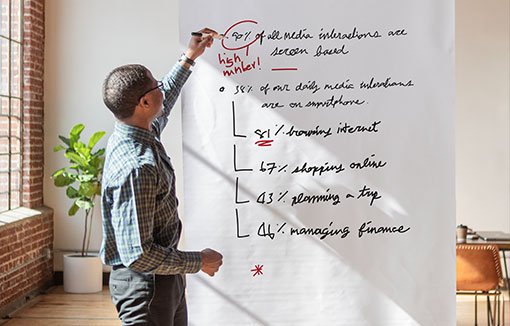 90% of all media interactions are
screen based
high
number!
38% of our daily media interations
are on smartphone.
81% browsing internet
67% shopping online
43% planning a trip
46% managing finance
*